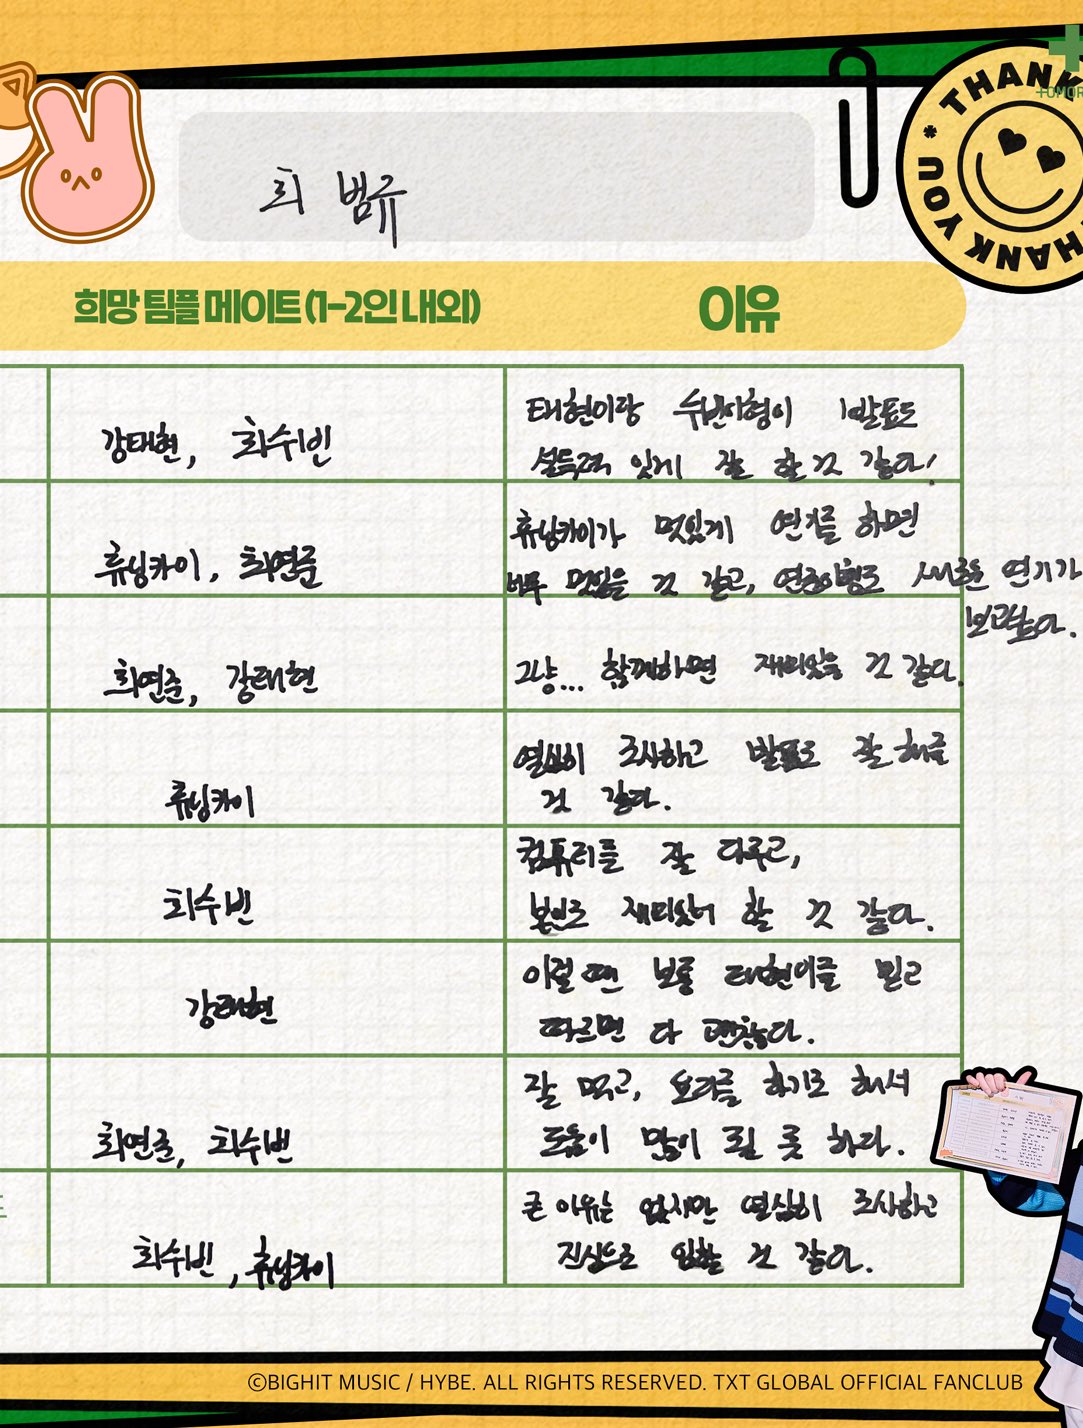 THANK YOU * THANK
최 범규
희망 팀플 메이트 (1-2인 내외)
이유
강태현, 최수빈
태현이랑 수빈이형이 발표도
설득력 있게 잘 할 것 같다!
휴닝카이, 최연준
휴닝카이가 멋있게 연기를 하면
너무 멋있을 것 같고, 연준이형도 새로운 연기가
보고싶다.
최연준, 강태현
그냥... 함께하면 재미있을 것 같다.
휴닝카이
열심히 조사하고 발표도 잘 해줄
것 같다.
최수빈
컴퓨터를 잘 다루고,
본인도 재미있어 할 것 같다.
강태현
이럴 땐 보통 태현이를 믿고
따르면 다 괜찮다.
최연준, 최수빈
잘 먹고, 요리를 하기도 해서
도움이 많이 될 듯 하다.
최수빈, 휴닝카이
큰 이유는 없지만 열심히 조사하고
진심으로 임할 것 같다.
ⓒBIGHIT MUSIC / HYBE. ALL RIGHTS RESERVED. TXT GLOBAL OFFICIAL FANCLUB